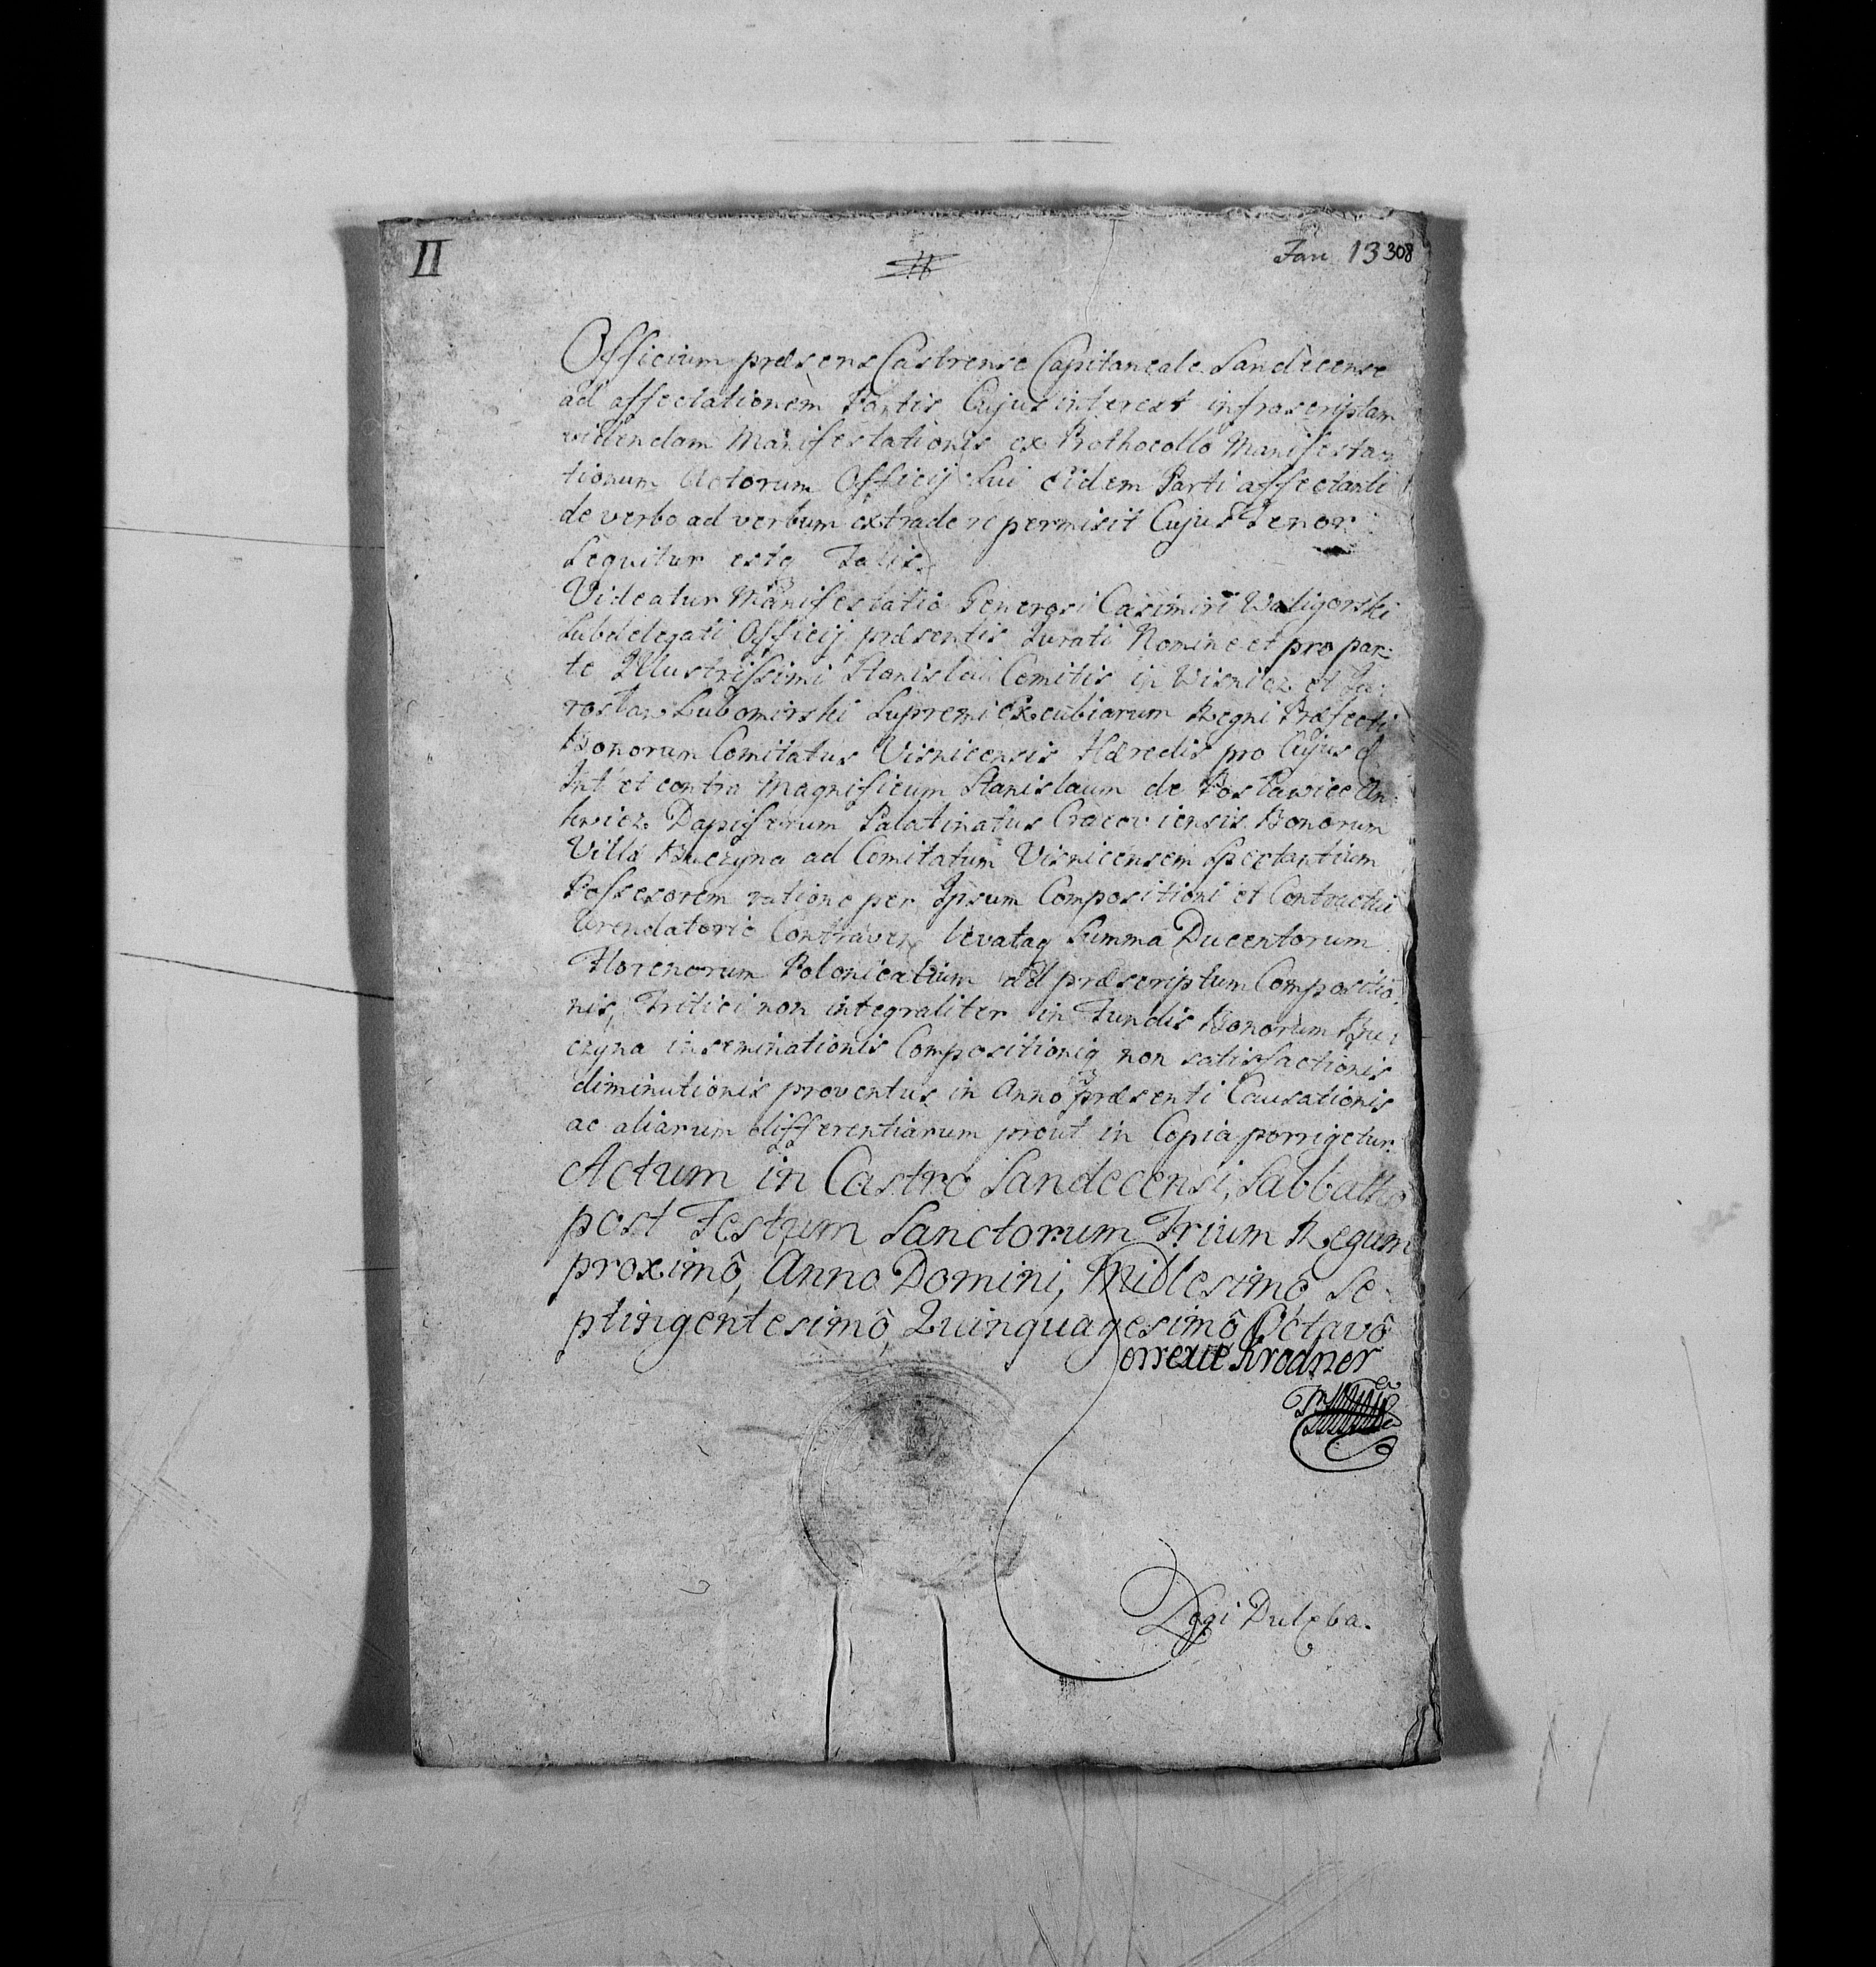 II
Jan 13 308
Officium præsens Castrense Capitaneale Sandecense
ad affectationem Partis Cujus interest infrascriptam
videndam Manifestationis ex Prothocollo Manifesta=
tionum Actorum Officij Sui eidem Parti affectanti
de verbo ad verbum extradere permisit Cujus Tenor
Sequitur estq Talis.
Videatur Manifestatio Generosi Casimiri Waligorski
Subdelegati Officij præsentis Jurati Nomine et pro par=
te Illustrissimi Stanislai Comitis in Wisnicz et Ja=
roslaw Lubomirski Supremi Excubiarum Regni Præfecti
Bonorum Comitatus Visnicensis Hæredis pro Cujus
Int et contra Magnificum Stanislaum de Poslawice An=
kwicz Dapiferum Palatinatus Cracoviensis Bonorum
Villa Buczyna ad Comitatum Visnicensem Spectantium
Possesorem ratione per Ipsum Compositioni et Contractui
Arendatorio Contraven levataq Summa Ducentorum
Florenorum Polonicalium ad præscriptum Compositio=
nis, Tritici non integraliter in Fundis Bonorum Bu=
czyna inseminationis Compositioniq non satisfactionis
diminutionis proventus in Anno præsenti Causationis
ac aliarum differentiarum prout in Copia porrigetur.
Actum in Castro Sandecensi, Sabbatho
post Festum Sanctorum Trium Regum
proximô, Anno Domini, Millesimô Se=
ptingentesimô Quinquagesimô Octavô
Correxit Krodner
Legi Dulęba.